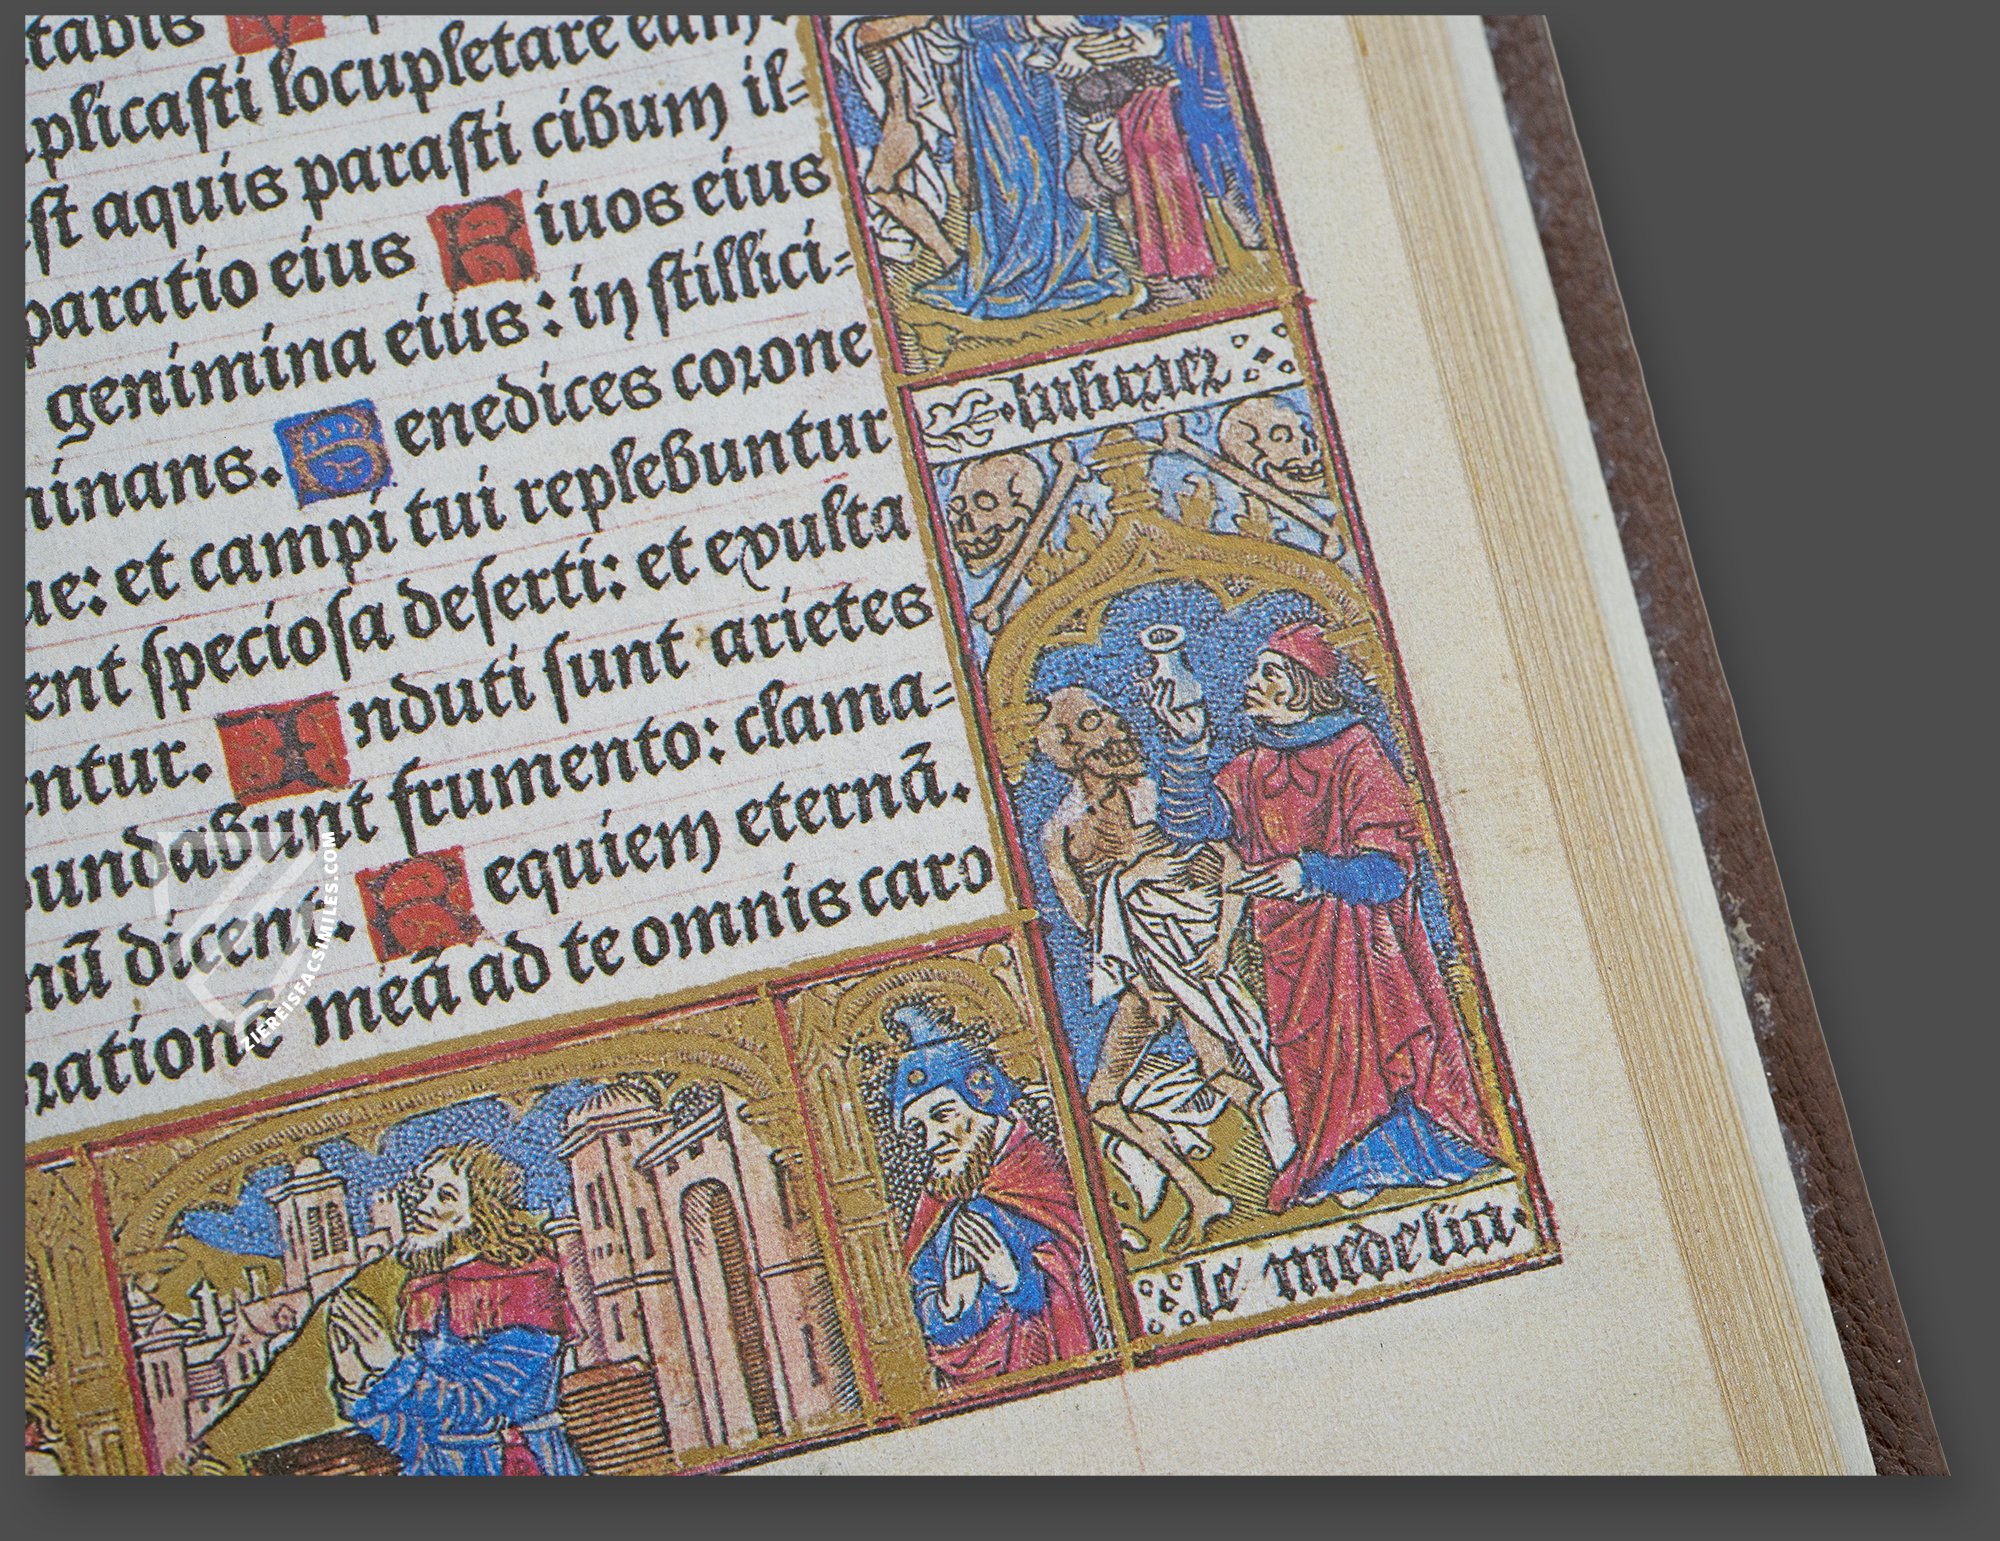 tabis
plicasti locupletare eam.
st aquis parasti cibum il=
paratio eius Riuos eius
genimina eius: in stillici=
ninans. Benedices corone
ue: et campi tui replebuntur
ent speciosa deserti: et exulta
entur. Induti sunt arietes
bundabunt frumento: clama=
nū dicent. Requiem eternā.
orationē meā ad te omnis caro
le medecin.
ZIEREISFACSIMILES.COM